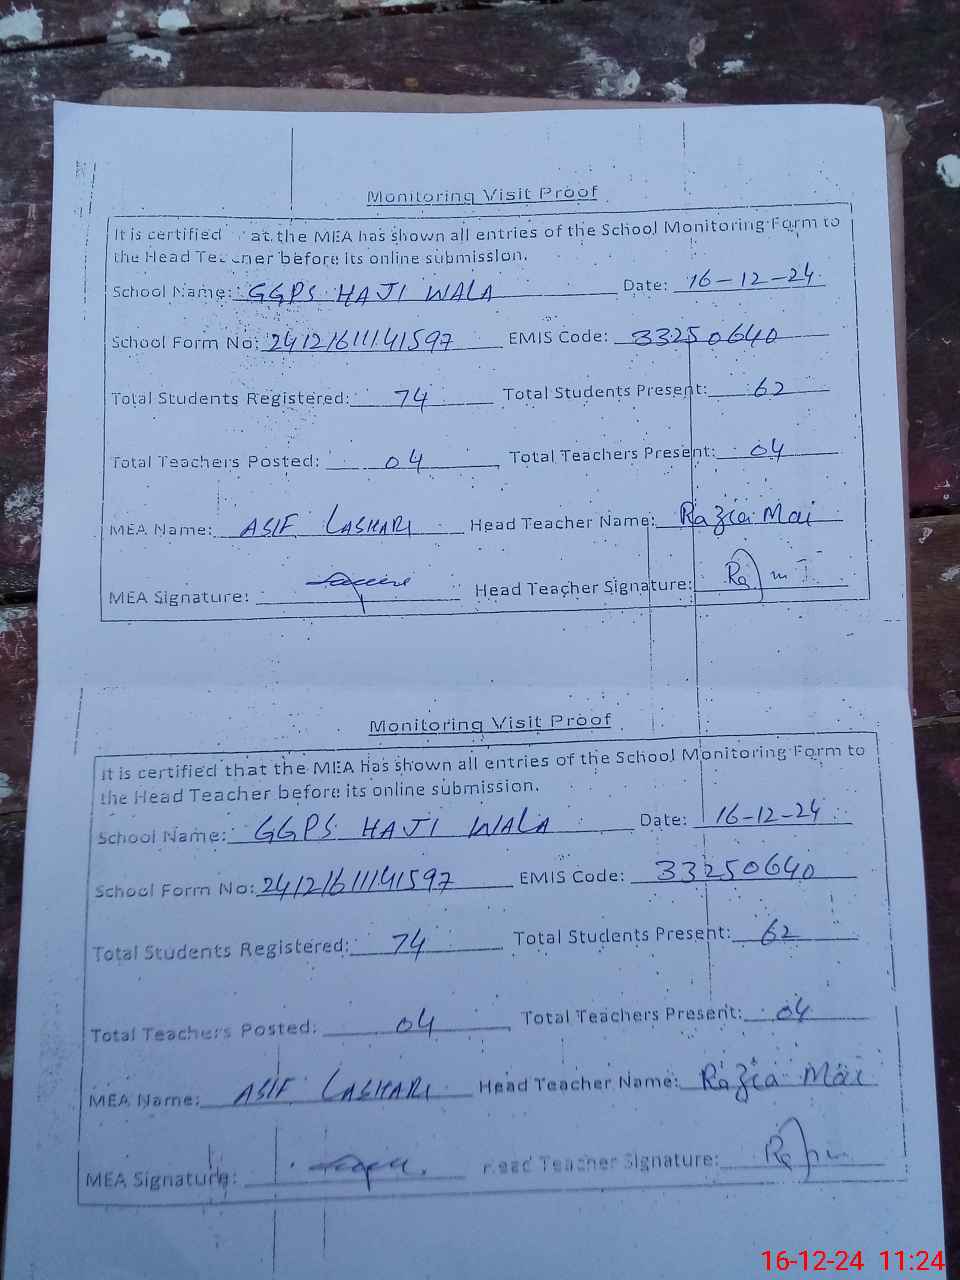 Monitoring Visit Proof
It is certified at the MEA has shown all entries of the School Monitoring Form to
the Head Teacher before its online submission.
School Name: GGPS HAJI WALA Date: 16-12-24
School Form No: 24121611141597 EMIS Code: 33250640
Total Students Registered: 74 Total Students Present: 62
Total Teachers Posted: 04 Total Teachers Present: 04
MEA Name: ASIF LASHARI Head Teacher Name: Razia Mai
MEA Signature: Head Teacher Signature:
Monitoring Visit Proof
It is certified that the MEA has shown all entries of the School Monitoring Form to
the Head Teacher before its online submission.
School Name: GGPS HAJI WALA Date: 16-12-24
School Form No: 24121611141597 EMIS Code: 33250640
Total Students Registered: 74 Total Students Present: 62
Total Teachers Posted: 04 Total Teachers Present: 04
MEA Name: ASIF LASHARI Head Teacher Name: Razia Mai
MEA Signature: Head Teacher Signature:
16-12-24 11:24